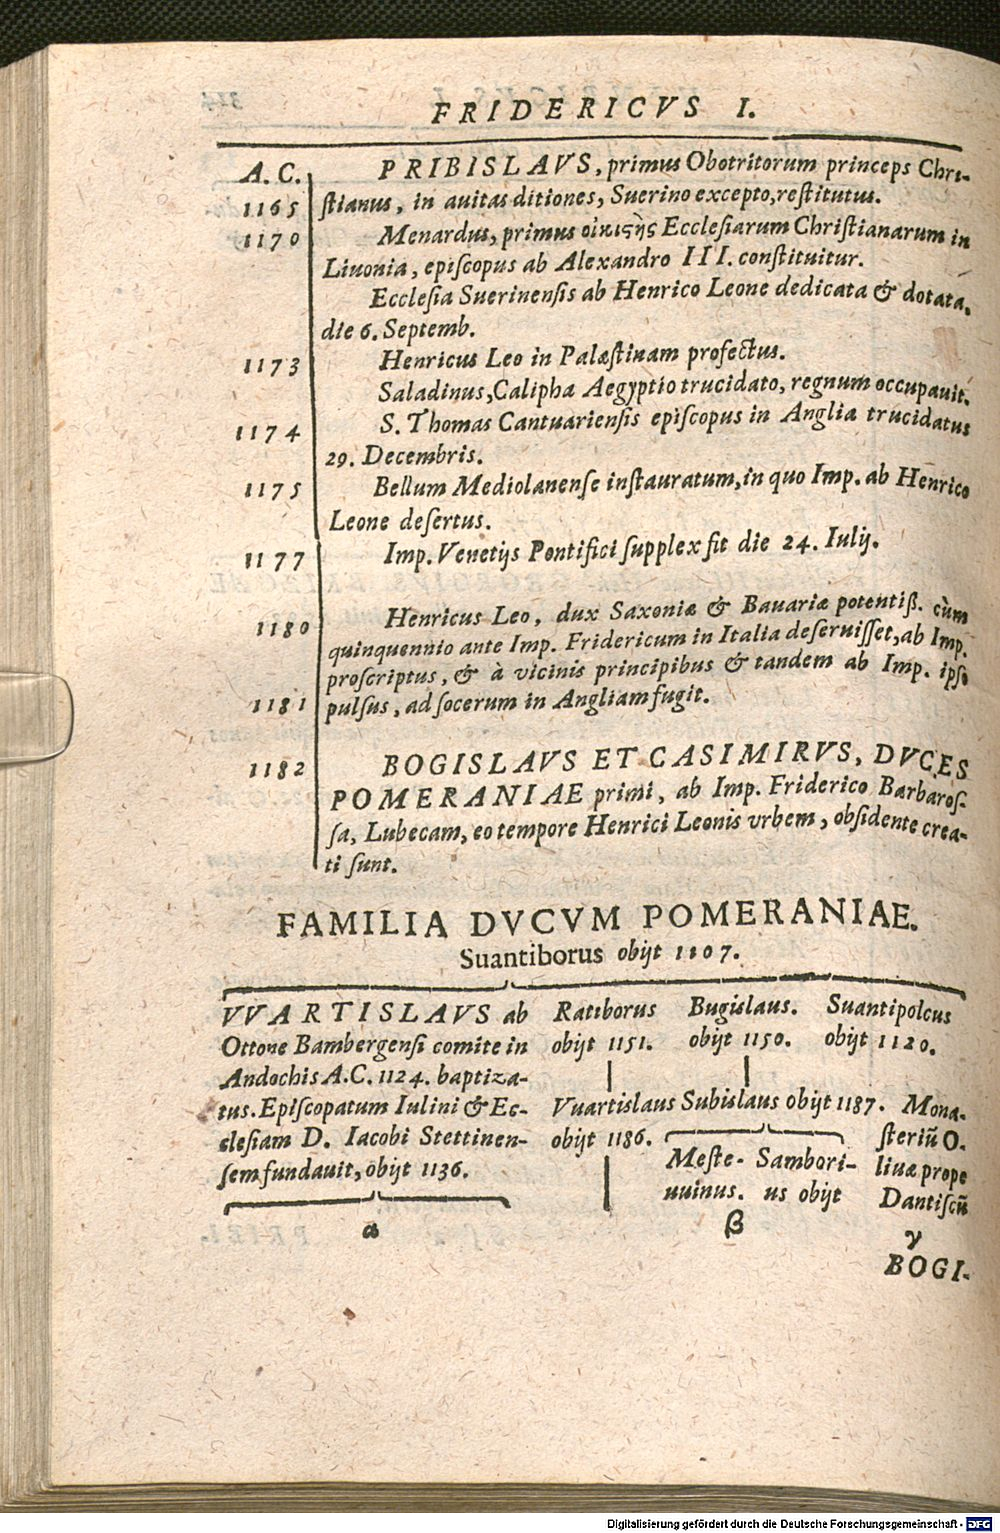 FRIDERICVS I.
A. C. PRIBISLAVS, primus Obotritorum princeps Chri-
1165 ſtianus, in auitas ditiones, Suerino excepto, reſtitutus.
1170 Menardus, primus οἰκιϛὴς Eccleſiarum Chriſtianarum in
Liuonia, epiſcopus ab Alexandro III. conſtituitur.
Eccleſia Suerinenſis ab Henrico Leone dedicata & dotata,
die 6. Septemb.
1173 Henricus Leo in Palæſtinam profectus.
Saladinus, Calipha Aegyptio trucidato, regnum occupauit.
1174 S. Thomas Cantuarienſis epiſcopus in Anglia trucidatus
29. Decembris.
1175 Bellum Mediolanenſe inſtauratum, in quo Imp. ab Henrico
Leone deſertus.
1177 Imp. Venetijs Pontifici ſupplex fit die 24. Iulij.
1180 Henricus Leo, dux Saxoniæ & Bauariæ potentiß. cùm
quinquennio ante Imp. Fridericum in Italia deſeruiſſet, ab Imp.
proſcriptus, & à vicinis principibus & tandem ab Imp. ipſo
1181 pulſus, ad ſocerum in Angliam fugit.
1182 BOGISLAVS ET CASIMIRVS, DVCES
POMERANIAE primi, ab Imp. Friderico Barbaroſ-
ſa, Lubecam, eo tempore Henrici Leonis vrbem, obſidente crea-
ti ſunt.
FAMILIA DVCVM POMERANIAE.
Suantiborus obijt 1107.
VVARTISLAVS ab
Ottone Bambergenſi comite in
Andochis A.C. 1124. baptiza-
tus. Epiſcopatum Iulini & Ec-
cleſiam D. Iacobi Stettinen-
ſem fundauit, obijt 1136.
α
Ratiborus
obijt 1151.
Vuartislaus
obijt 1186.
Bugislaus.
obijt 1150.
Subislaus obijt 1187.
Meſte-
uuinus.
Sambori-
us obijt
β
Suantipolcus
obijt 1120.
Mona-
ſteriũ O-
liuæ prope
Dantiſcũ
γ
BOGI-
Digitalisierung gefördert durch die Deutsche Forschungsgemeinschaft - DFG